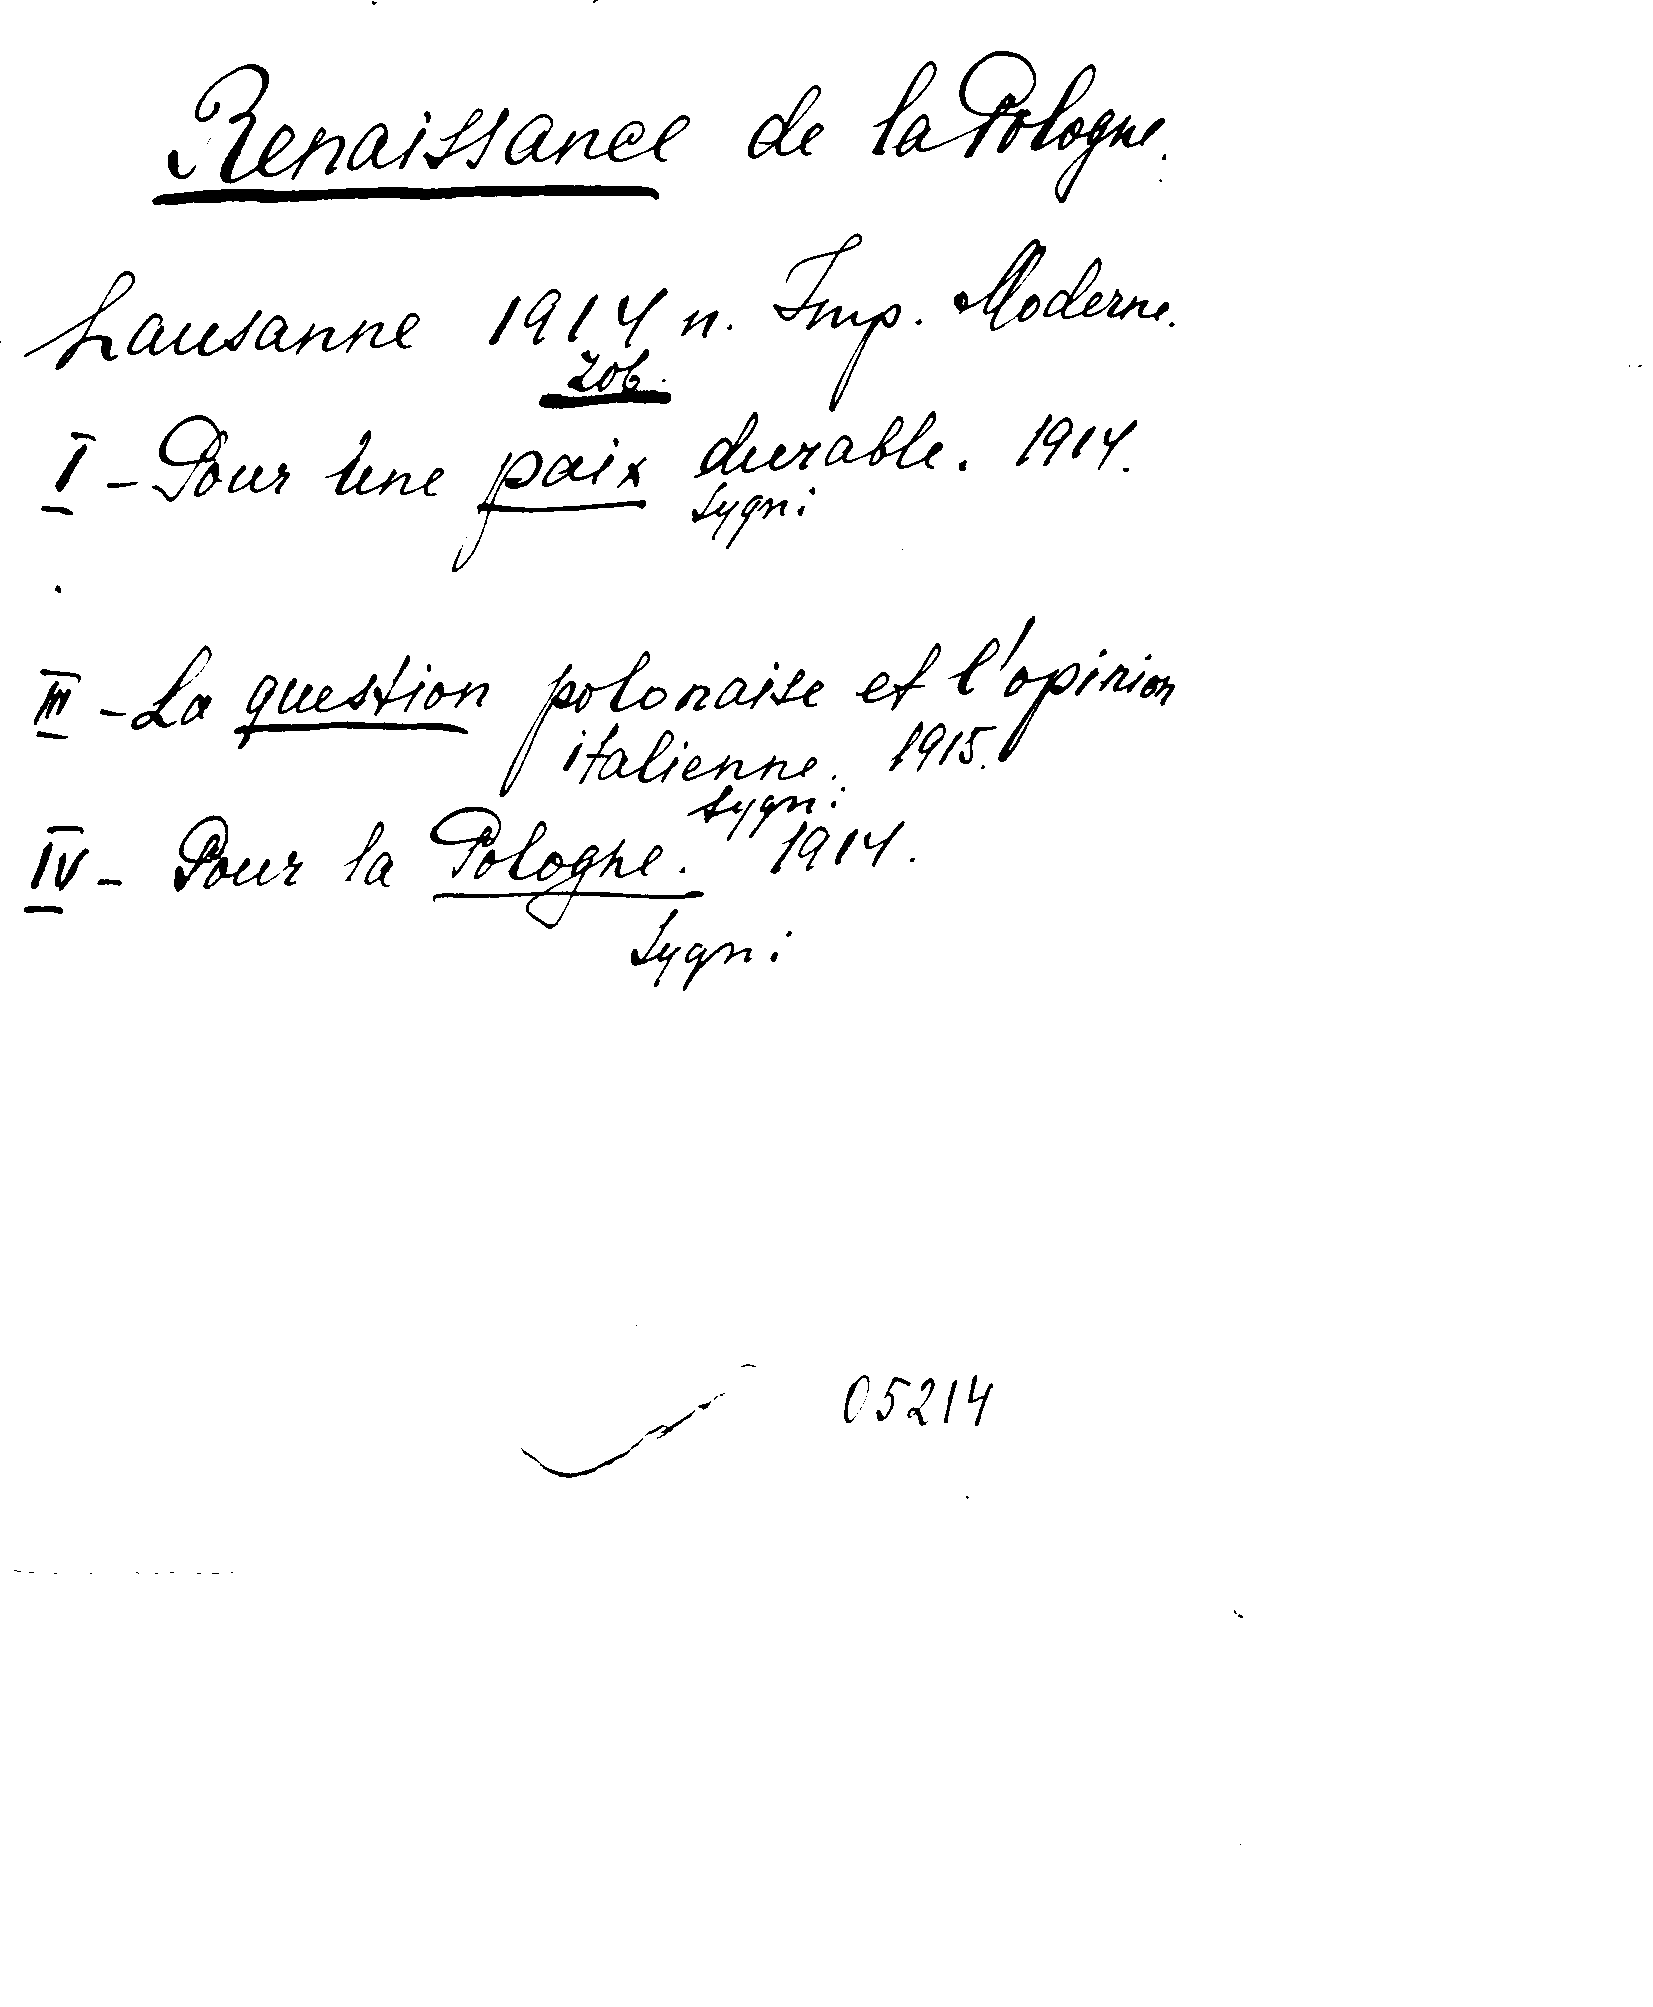 Renaissance de la Pologne.
Lausanne 1914 n. Imp. Moderne.
Zob.
I - Pour une paix durable. 1914.
Sygn:
III - La question polonaise et l'opinion
italienne. 1915.
Sygn:
IV - Pour la Pologne. 1914.
Sygn:
05214